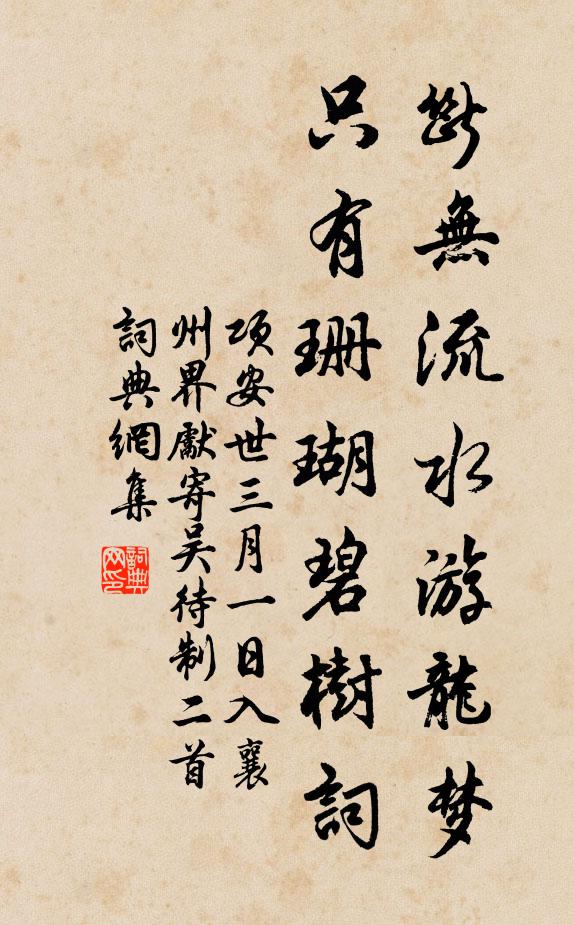 斷無流水游龍梦
只有珊瑚碧樹詞
项安世三月一日入襄
州界獻寄吴待制二首
詞典網集
詞典
网印